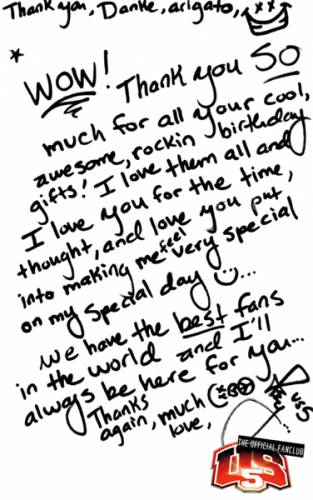 Thank you, Danke, arigato,
WOW! Thank you SO
much for all your cool,
awesome, rockin birthday
gifts! I love them all and
I love you for the time,
thought, and love you put
into making me feel very special
on my special day ...
We have the best fans
in the world and I'll
always be here for you...
Thanks
again, much
love,
US5
THE OFFICIAL FANCLUB
US5